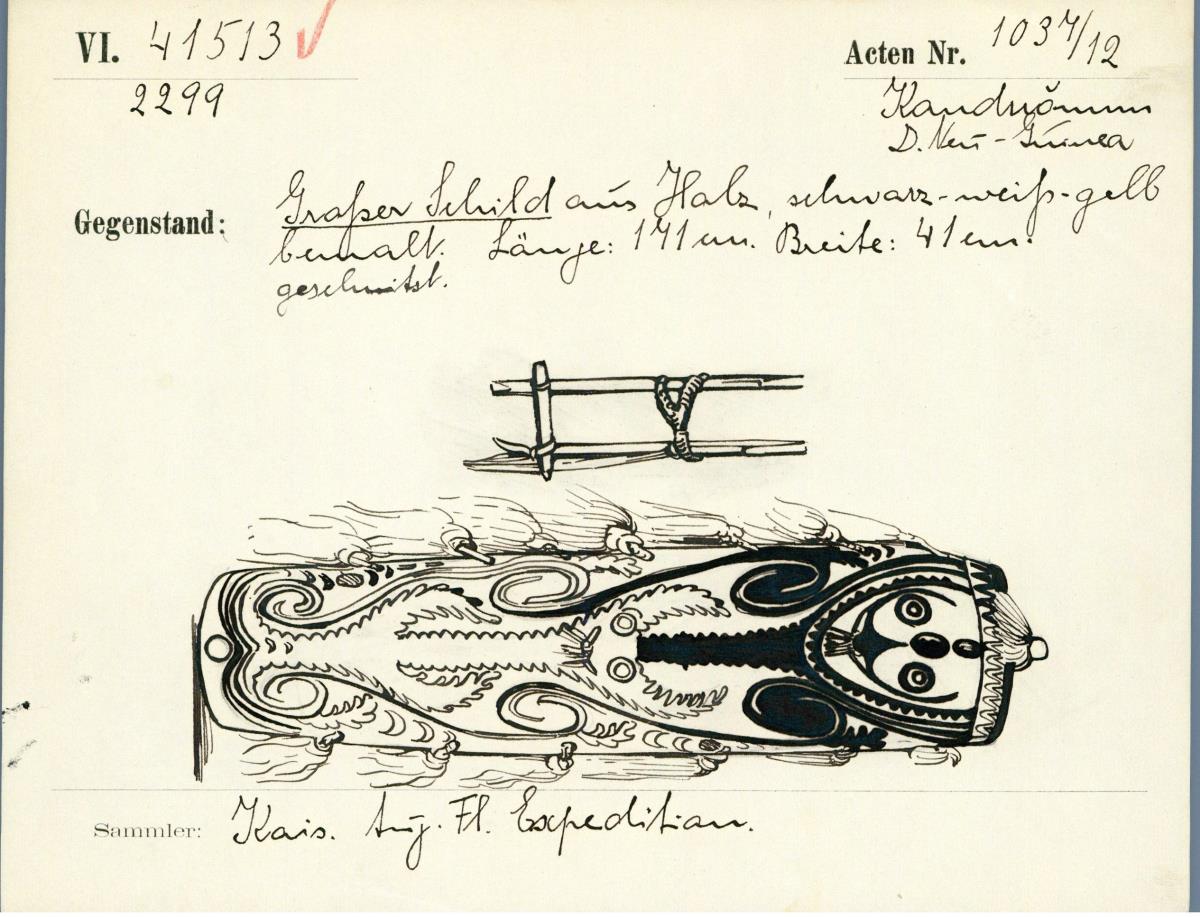 VI. 41513 Acten Nr. 1037/12
2299
D. Neu-Guinea
Gegenstand: Großer Schild aus Holz, schwarz-weiß-gelb
bemalt. Länge: 171 cm. Breite: 41 cm.
geschnitzt.
Sammler: Kais. Aug. Fl. Expedition.